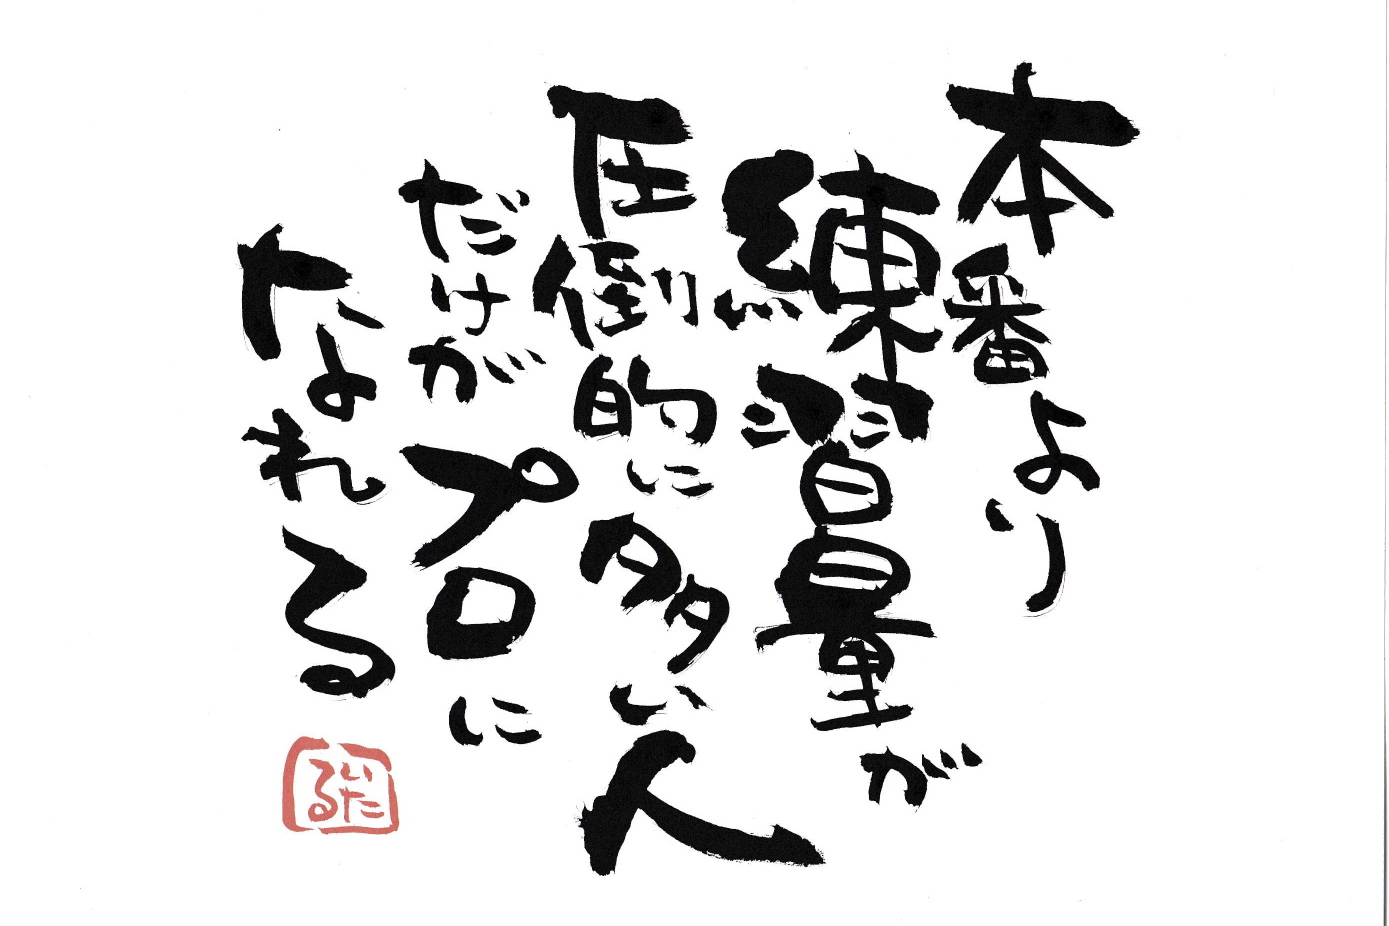 本番より
練習量が
圧倒的に多い人
だけがプロに
なれる
いたる